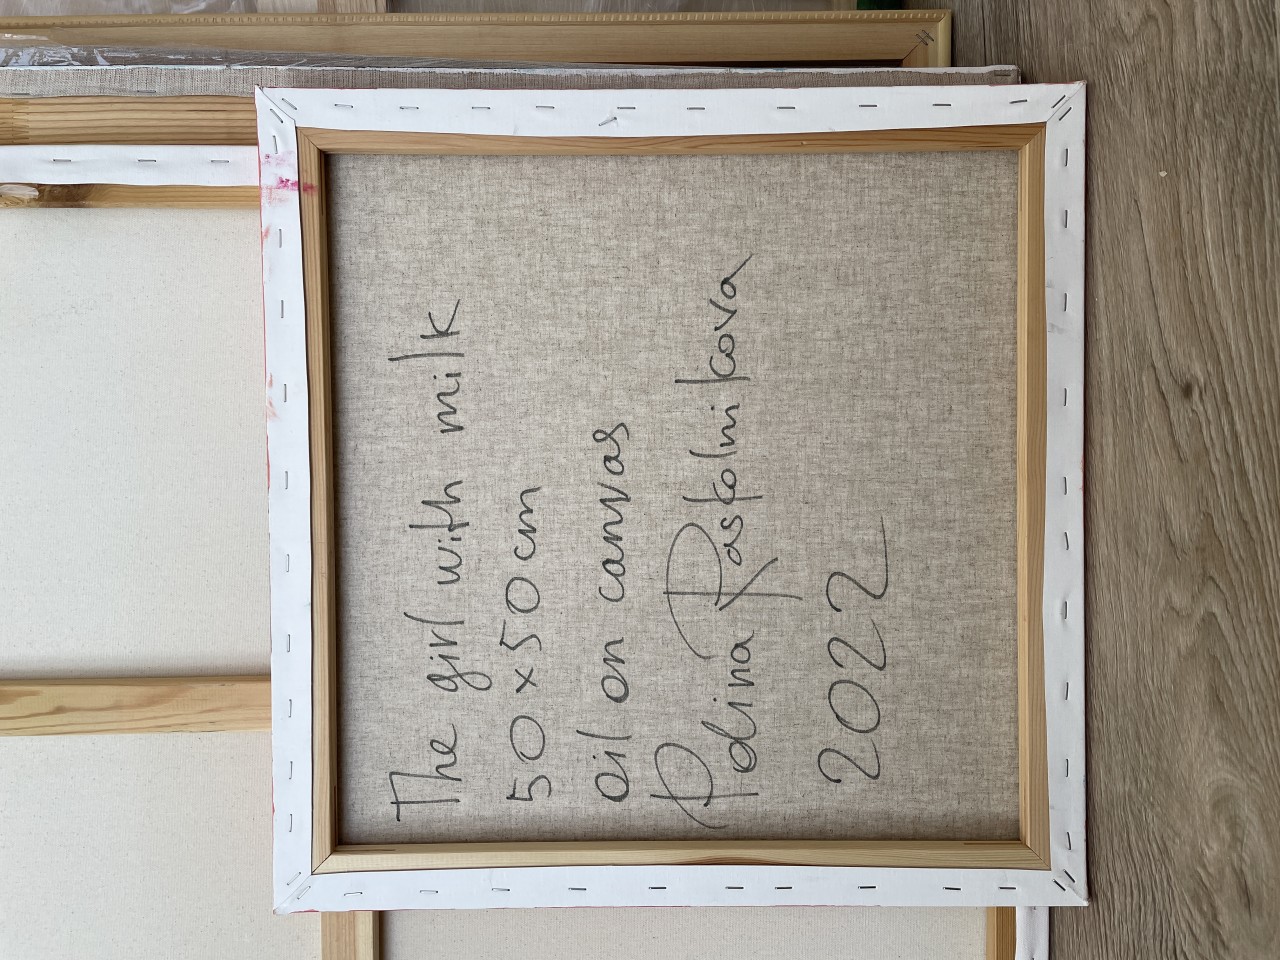 The girl with milk
50 x 50 cm
oil on canvas
Polina Raskolnikova
2022